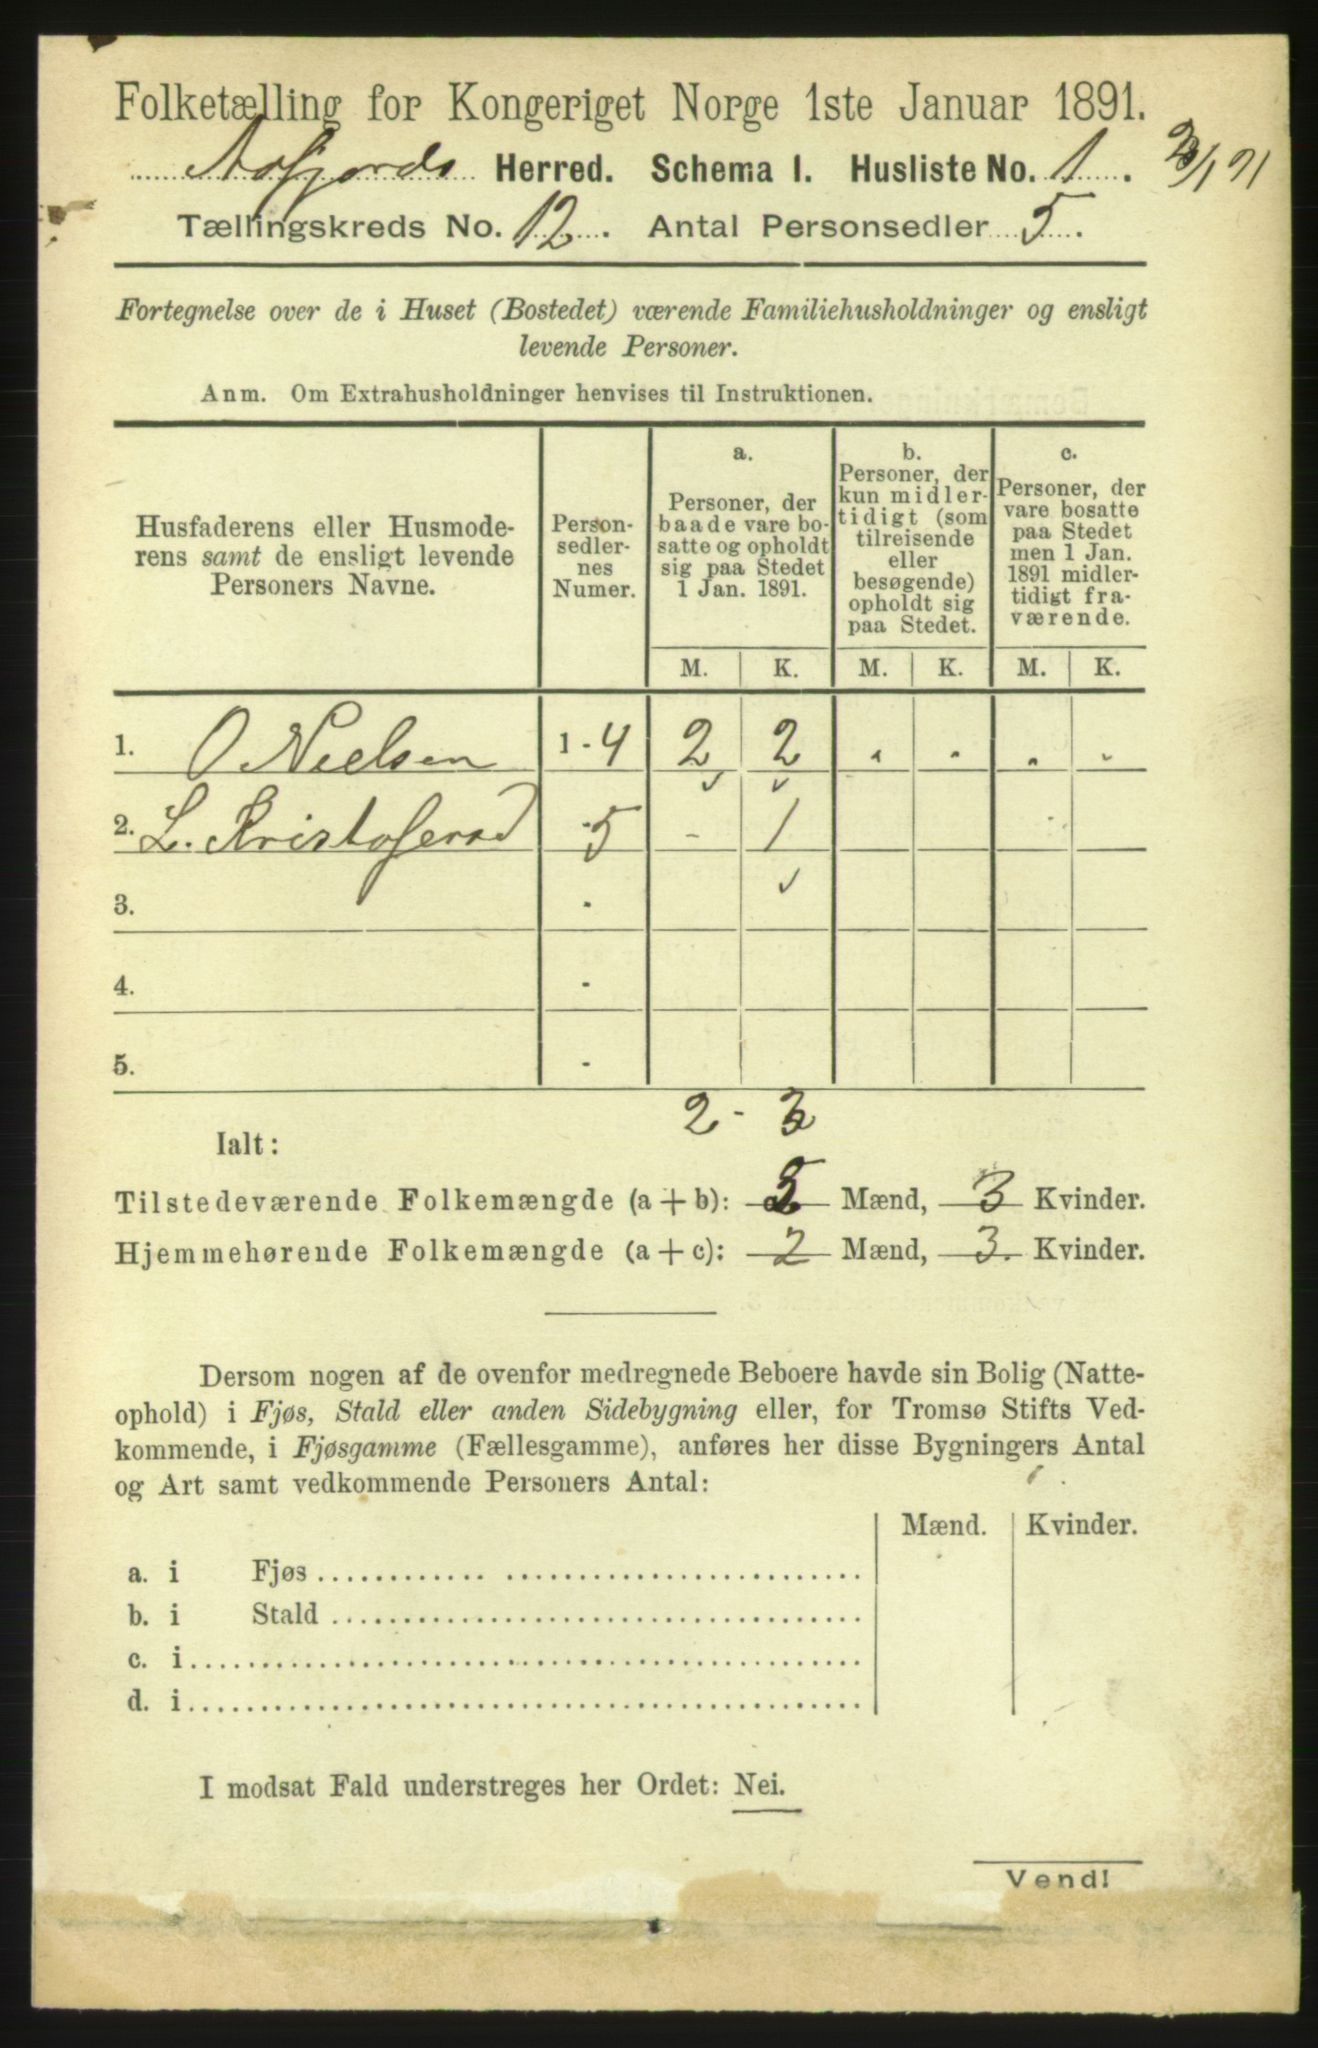 Folketælling for Kongeriget Norge 1ste Januar 1891.
Aafjords Herred. Schema I. Husliste No. 1.
Tællingskreds No. 12. Antal Personsedler 5.
Fortegnelse over de i Huset (Bostedet) værende Familiehusholdninger og ensligt
levende Personer.
Anm. Om Extrahusholdninger henvises til Instruktionen.
Husfaderens eller Husmode-
rens samt de ensligt levende
Personers Navne.
Person-
sedler-
nes
Numer.
a.
Personer, der
baade vare bo-
satte og opholdt
sig paa Stedet
1 Jan. 1891.
b.
Personer, der
kun midler-
tidigt (som
tilreisende
eller
besøgende)
opholdt sig
paa Stedet.
c.
Personer, der
vare bosatte
paa Stedet
men 1 Jan.
1891 midler-
tidigt fra-
værende.
M. K. M. K. M. K.
1. O Nielsen 1 - 4 2 2 . . . .
2. L. Kristofersd 5 - 1
3. -
4. -
5. -
2 - 3
Ialt:
Tilstedeværende Folkemængde (a + b): Mænd, 3 Kvinder.
Hjemmehørende Folkemængde (a + c): 2 Mænd, 3 Kvinder.
Dersom nogen af de ovenfor medregnede Beboere havde sin Bolig (Natte-
ophold) i Fjøs, Stald eller anden Sidebygning eller, for Tromsø Stifts Ved-
kommende, i Fjøsgamme (Fællesgamme), anføres her disse Bygningers Antal
og Art samt vedkommende Personers Antal:
Mænd. Kvinder.
a. i Fjøs
b. i Stald
c. i
d. i
I modsat Fald understreges her Ordet: Nei.
Vend!